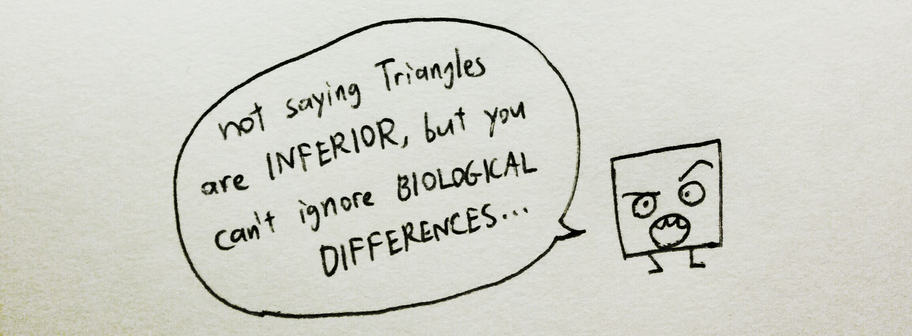 not saying Triangles
are INFERIOR, but you
can't ignore BIOLOGICAL
DIFFERENCES...